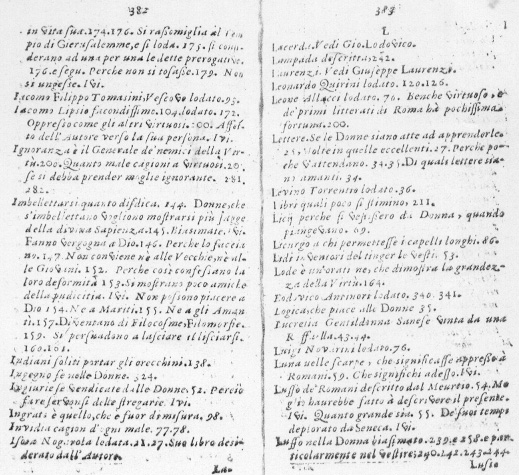 382
in vita sua. 174. 176. Si rassomiglia al Tem
pio di Gierusalemme, e si loda. 175. si consi
derano ad una per una le dette prerogative.
176. e segu. Perche non si tosasse. 179. Non
si ungesse. Ivi.
Iacomo Filippo Tomasini, Vescovo lodato. 95.
Iacomo Lipsio facondissimo. 104. lodato. 172.
Oppresso come gli altri Virtuosi. 200. Affet
to dell'Autore verso la sua persona. Ivi.
Ignoranza è il Generale de' nemici della Vir
tù. 200. Quanto male cagioni a Virtuosi. 20
se si debba prender moglie ignorante. 281.
282.
Imbellettarsi quanto disdica. 144. Donne, che
s'imbellettano vogliono mostrarsi più sagge
della divina Sapienza. 145. Biasimate. Ivi.
Fanno vergogna a Dio. 146. Perche lo faccia
no. 147. Non conviene nè alle Vecchie, nè al
le Giovani. 152. Perche così confessano la
loro deformità 153. Si mostrano poco amiche
della pudicitia. Ivi. Non possono piacere a
Dio 154. Ne a Mariti. 155. Ne a gli Aman
ti. 157. Diventano di Filocosme, Filomorfie.
159. Si persuadono a lasciare il lisciarsi.
160. 161.
Indiani soliti portar gli orecchini. 138.
Ingegno se nelle Donne. 324.
Ingiurie se vendicate dalle Donne. 52. Perciò
farse versi delle stregarie. Ivi.
Ingrato è quello, che è fuor di misura. 98.
Invidia cagion d'ogni male. 77. 78.
Isotta Nogarola lodata. 21. 27. Suo libro desi
derato dall'Autore.
La-
383
L
Lacerda. Vedi Gio. Lodovico.
Lampada descritta. 242.
Laurenzi. Vedi Giuseppe Laurenzi.
Leonardo Quirini lodato. 120. 126.
Leone Allacci lodato. 76. Benche virtuoso, e
de' primi litterati di Roma hà pochissima
fortuna. 200.
Lettere. Se le Donne siano atte ad apprenderle
25. Molte in quelle eccellenti. 27. Perche po
che v'attendano. 34. 35. Di quali lettere sia
no amanti. 34.
Levino Torrentio lodato. 36.
Libri quali poco si stimino. 211.
Licij perche si vestissero da Donna, quando
piangevano. 69.
Licurgo a chi permettesse i capelli longhi. 86.
Lidi inventori del tinger le vesti. 53.
Lode è un'orationè, che dimostra la grandez-
za della Virtù. 164.
Lodovico lodato. 340. 341.
Logica se piace alle Donne 35.
Lucretia Gentildonna Sanese vinta da una
Ruffiana. 43. 44.
Luigi Novarini lodato. 76.
Luna nelle scarpe, che significasse appresso à
Romani. 59. Che significhi adesso. Ivi.
Lusso de' Romani descritto dal Meursio. 54. Me
glio haurebbe fatto à descrivere il presente.
Ivi. Quanto grande sia. 55. De' suoi tempi
deplorato da Seneca. Ivi.
Lusso nella Donna biasimato. 239. e 258. e par-
ticolarmente nel vestire. 240. 242. 243. 244
Lusio